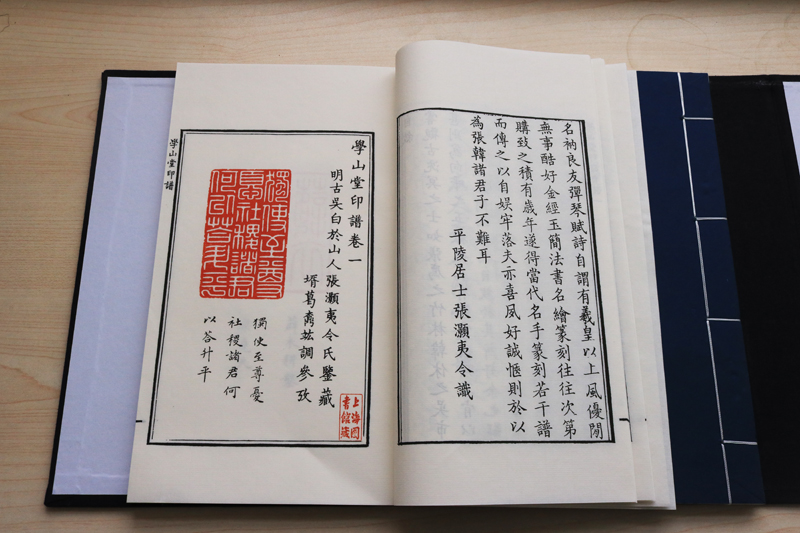 名衲良友彈琴賦詩自謂有羲皇以上風優閒
無事酷好金經玉簡法書名繪篆刻往往次第
購致之積有歲年遂得當代名手篆刻若干譜
而傳之以自娛牢落夫亦喜風好誠愜則於以
為張韓諸君子不難耳
平陵居士張灝夷令識
學山堂印譜卷一
明古吳白於山人張灝夷令氏鑒藏
壻葛鼒調參攷
上海圖
書館藏
獨使至尊憂
社稷諸君何
以答升平
獨使至尊
憂社稷諸君
何以答升平
學山堂印譜